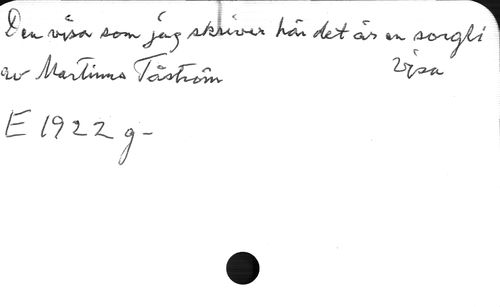 Den visa som jag skriver här det är en sorgli
visa
av Martinus Tåström
E 1922 g-